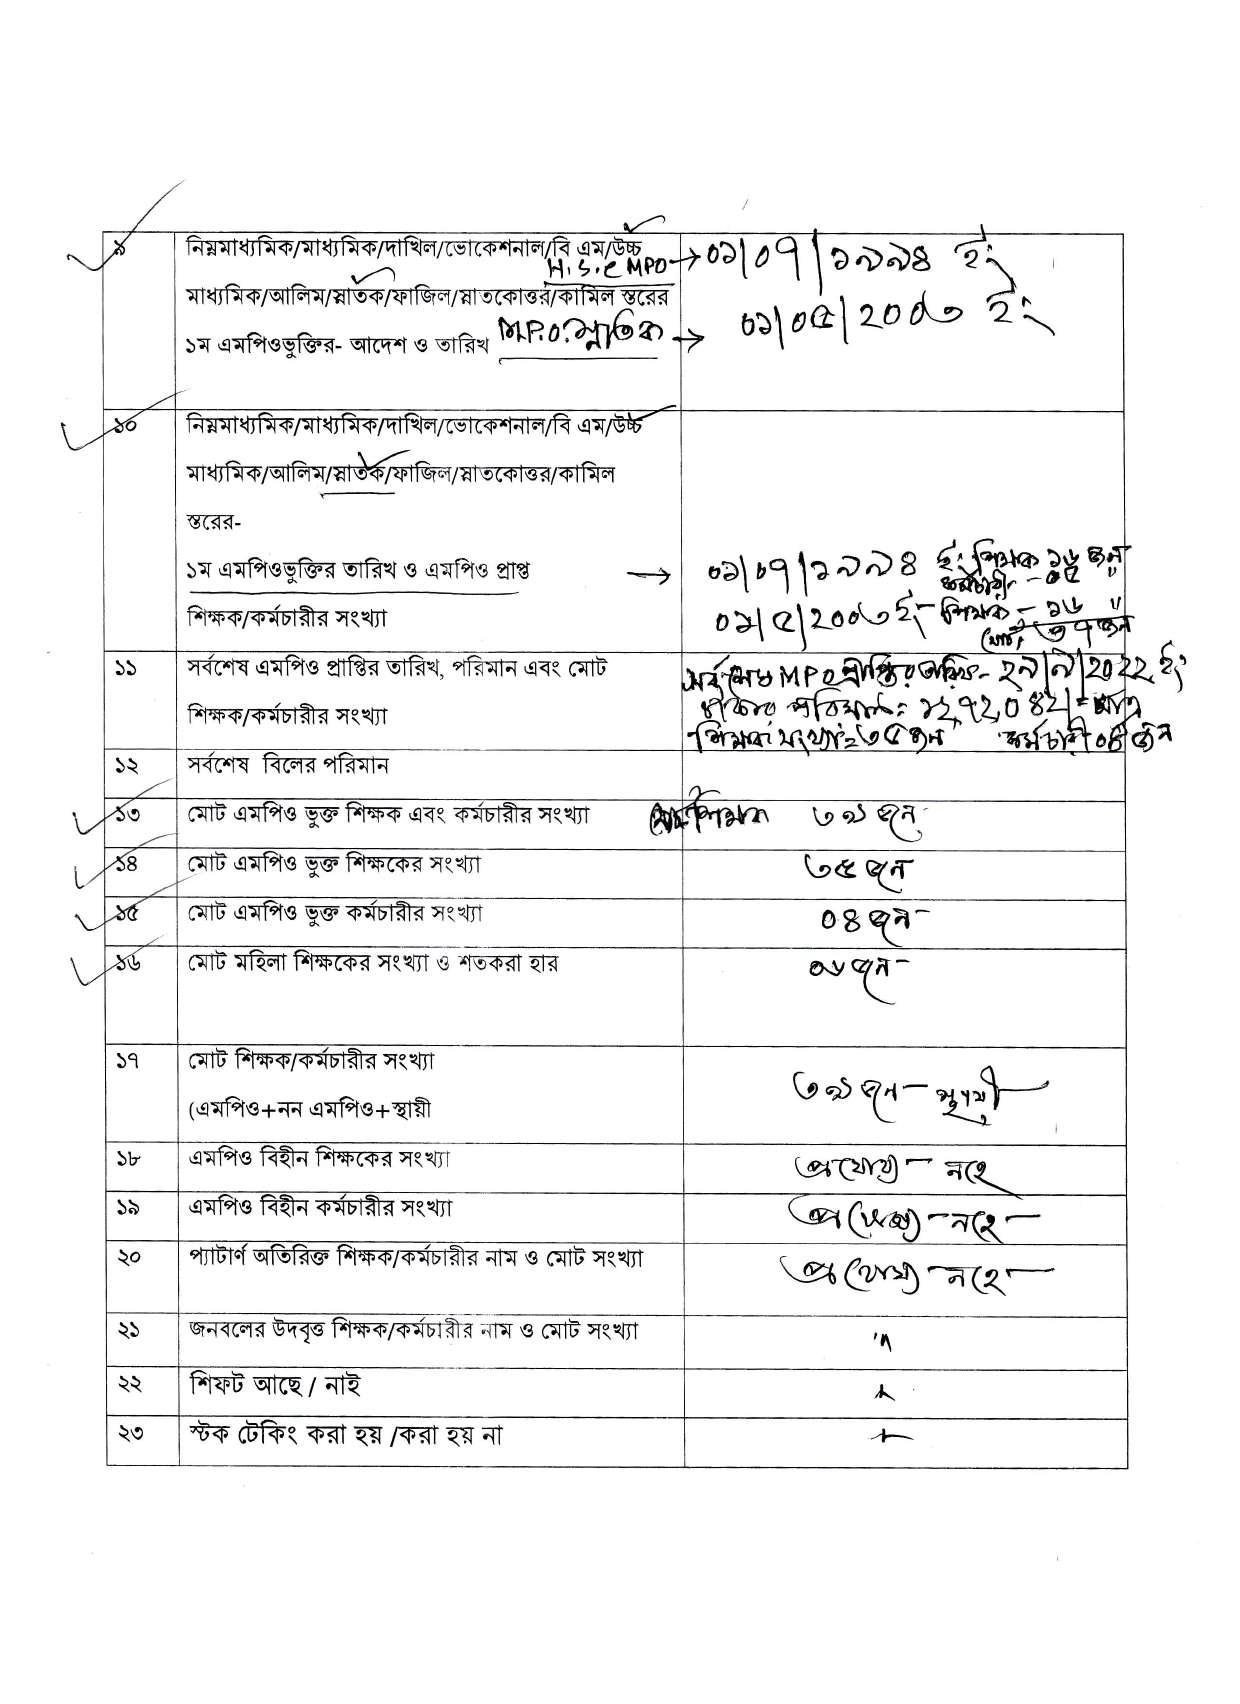 ৯ নিম্নমাধ্যমিক/মাধ্যমিক/দাখিল/ভোকেশনাল/বি এম/উচ্চ
H.S.C MPO → ০১/০৭/১৯৯৪ ইং
মাধ্যমিক/আলিম/স্নাতক/ফাজিল/স্নাতকোত্তর/কামিল স্তরের
১ম এমপিওভুক্তির- আদেশ ও তারিখ M.P.O. স্নাতক → ০১/০৫/২০০৩ ইং
১০ নিম্নমাধ্যমিক/মাধ্যমিক/দাখিল/ভোকেশনাল/বি এম/উচ্চ
মাধ্যমিক/আলিম/স্নাতক/ফাজিল/স্নাতকোত্তর/কামিল
স্তরের-
১ম এমপিওভুক্তির তারিখ ও এমপিও প্রাপ্ত → ০১/০৭/১৯৯৪ ইং শিক্ষক ১৬ জন
কর্মচারী - ০৫ "
শিক্ষক/কর্মচারীর সংখ্যা ০১/৫/২০০৩ ইং- শিক্ষক - ১৬ "
মোট ৩৭ জন
১১ সর্বশেষ এমপিও প্রাপ্তির তারিখ, পরিমান এবং মোট সর্বশেষ MPO প্রাপ্তির তারিখ- ২৯/৯/২০২২ ইং
শিক্ষক/কর্মচারীর সংখ্যা টাকার পরিমান: ১২,৭২,০৪২/= মাত্র
শিক্ষক সংখ্যা: ৩৫ জন কর্মচারী ০৪ জন
১২ সর্বশেষ বিলের পরিমান
১৩ মোট এমপিও ভুক্ত শিক্ষক এবং কর্মচারীর সংখ্যা শিক্ষক ৩৯ জন
১৪ মোট এমপিও ভুক্ত শিক্ষকের সংখ্যা ৩৫ জন
১৫ মোট এমপিও ভুক্ত কর্মচারীর সংখ্যা ০৪ জন
১৬ মোট মহিলা শিক্ষকের সংখ্যা ও শতকরা হার ০৬ জন
১৭ মোট শিক্ষক/কর্মচারীর সংখ্যা
(এমপিও+নন এমপিও+স্থায়ী ৩৯ জন - স্থায়ী
১৮ এমপিও বিহীন শিক্ষকের সংখ্যা প্রযোজ্য - নহে
১৯ এমপিও বিহীন কর্মচারীর সংখ্যা প্রযোজ্য - নহে -
২০ প্যাটার্ণ অতিরিক্ত শিক্ষক/কর্মচারীর নাম ও মোট সংখ্যা প্রযোজ্য - নহে -
২১ জনবলের উদবৃত্ত শিক্ষক/কর্মচারীর নাম ও মোট সংখ্যা
২২ শিফট আছে / নাই
২৩ স্টক টেকিং করা হয় /করা হয় না